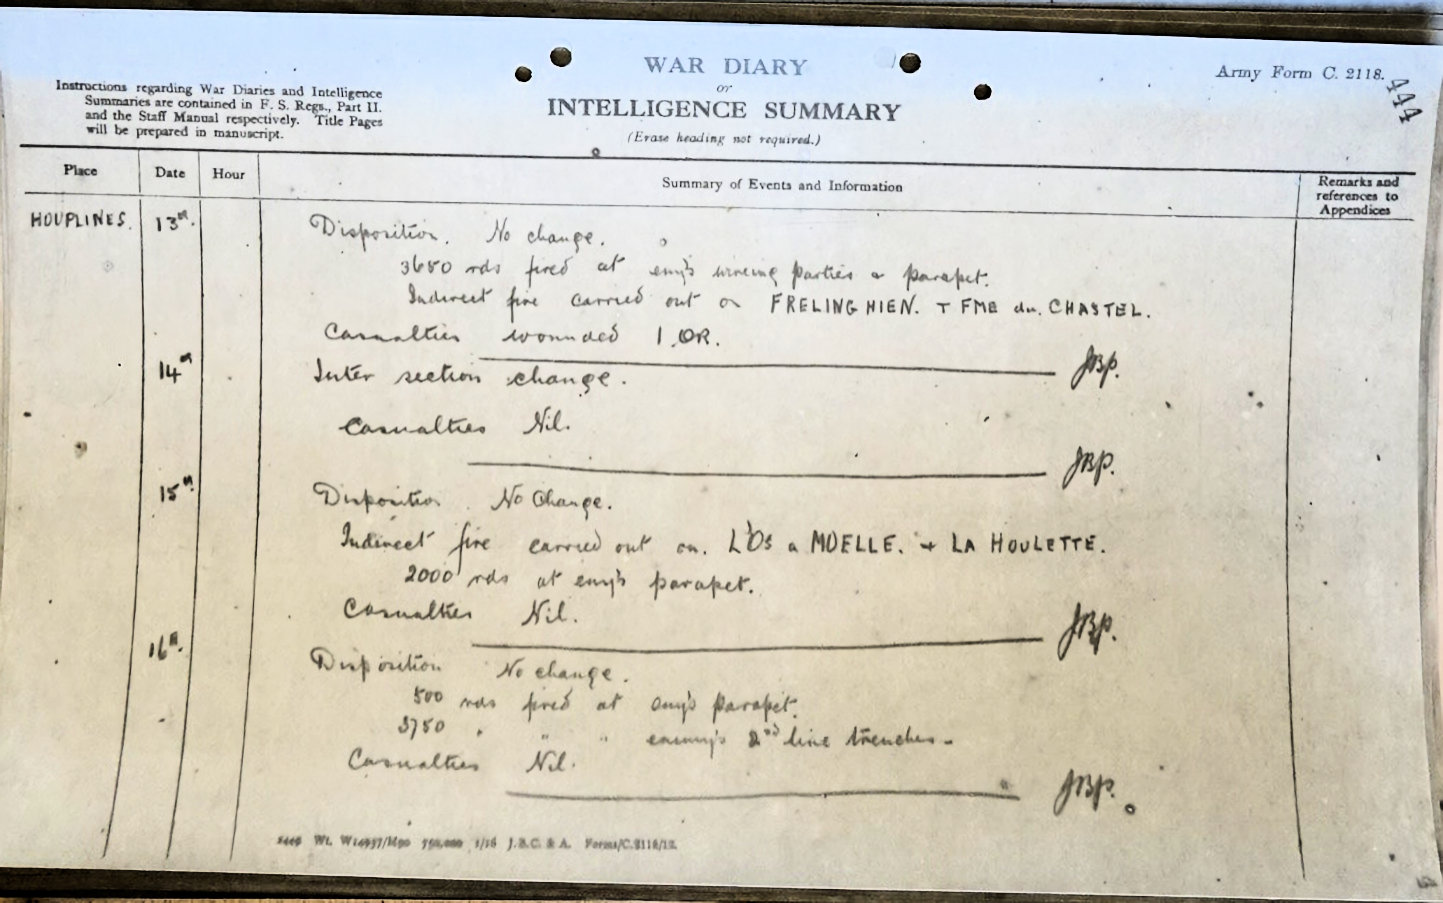 WAR DIARY
or
INTELLIGENCE SUMMARY
(Erase heading not required.)
Army Form C. 2118.
444
Instructions regarding War Diaries and Intelligence
Summaries are contained in F. S. Regs., Part II.
and the Staff Manual respectively. Title Pages
will be prepared in manuscript.
Place Date Hour Summary of Events and Information Remarks and references to Appendices
HOUPLINES. 13th. Disposition. No change.
3650 rds fired at emy's wireing parties & parapet.
Indirect fire carried out on FRELINGHIEN. + FME du. CHASTEL.
Casualties wounded 1.OR.
JBP.
14th Inter section change.
Casualties Nil.
JBP.
15th Disposition. No Change.
Indirect fire carried out on. L'Os a MOELLE. + LA HOULETTE.
2000 rds at emy's parapet.
Casualties Nil.
JBP.
16th. Disposition No change.
500 rds fired at emy's parapet.
3750 " " " enemy's 2nd line trenches.
Casualties Nil.
JBP.
Wt. 1/16 J.B.C. & A. Forms/C.2118/12.